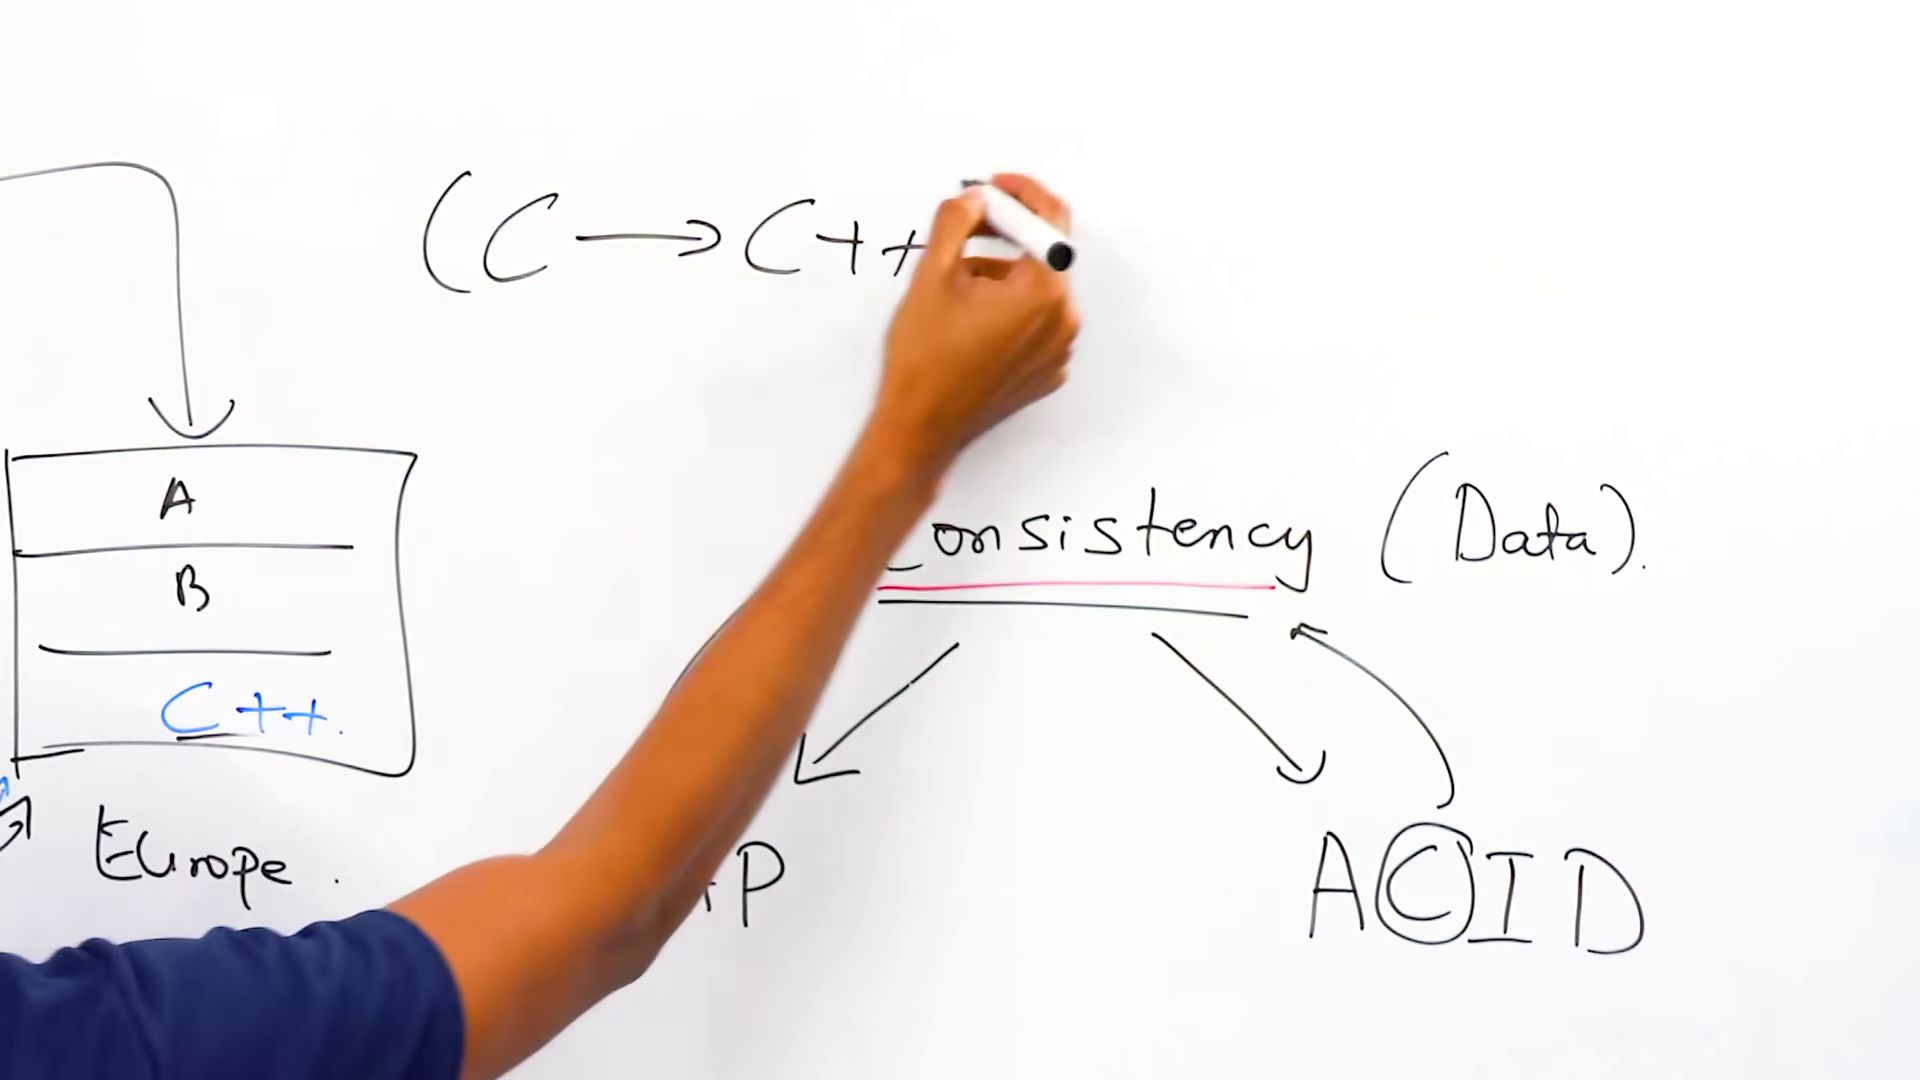 (C → C++
A
B
C++.
Europe.
Consistency (Data).
P
ACID